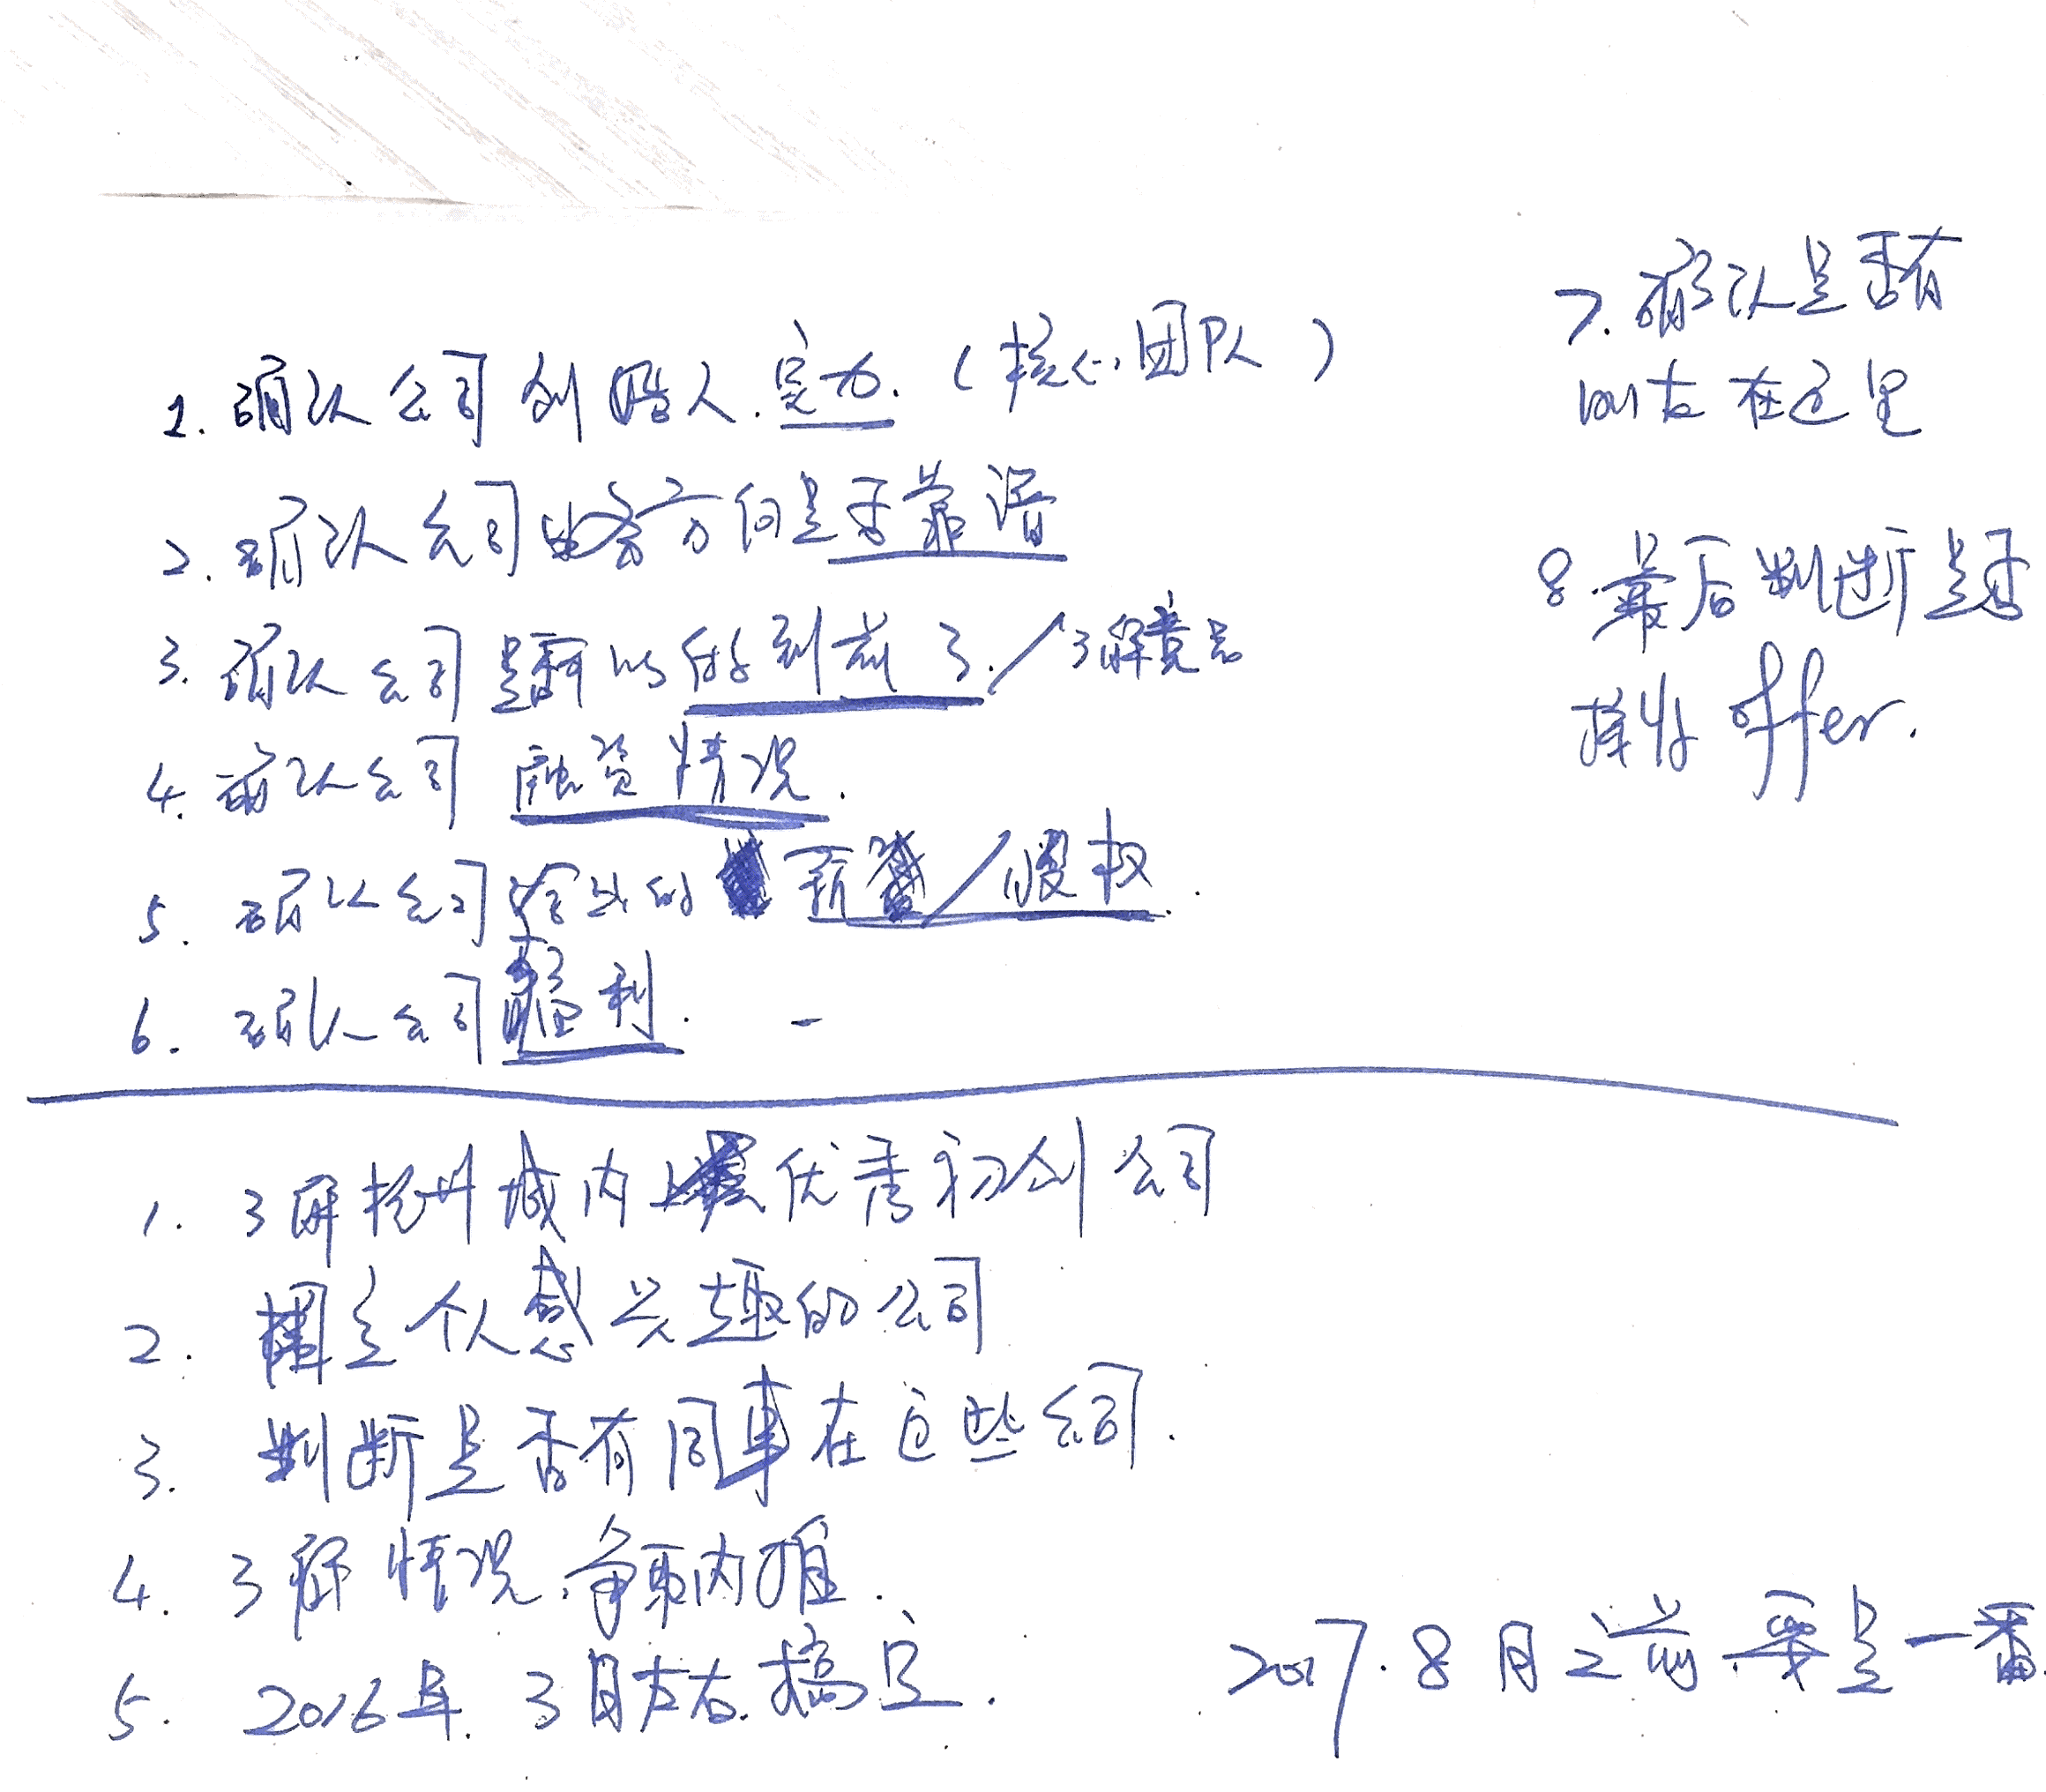 1. 确认公司创始人.实力.（核心团队）
2. 确认公司业务方向是否靠谱
3. 确认公司是否可以做到前3./了解竞品
4. 确认公司 融资情况.
5. 确认公司给出的 薪资/股权.
6. 确认公司盈利.
7. 确认是否有
在这里
8. 最后判断是否
接收 offer.
1. 了解杭州城内最优秀初创公司
2. 圈定个人感兴趣的公司
3. 判断是否有同事在这些公司.
4. 了解情况.争取内推.
5. 2016年.3月左右.搞定.
2017.8月之前 要是一番